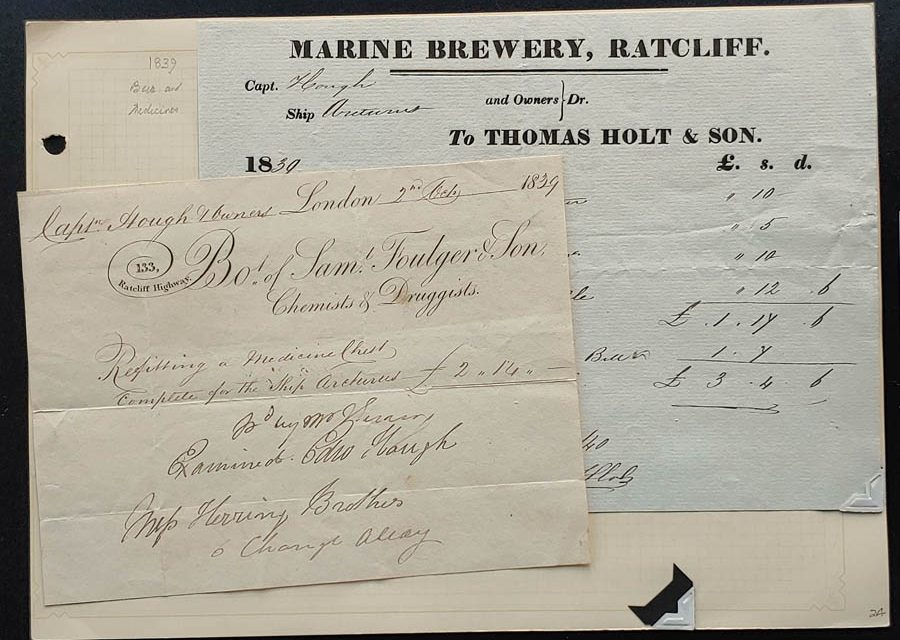 1839
Beer and
Medicines
MARINE BREWERY, RATCLIFF.
Capt. Hough
and Owners } Dr.
Ship Arcturus
To THOMAS HOLT & SON.
1839 £. s. d.
" 10
" 5
" 10
" 12 . 6
£ . 1 . 17 . 6
1 . 7
£ 3 . 4 6
Captn Hough & Owners London 2nd Feb 1839
133,
Ratcliff Highway.
Bot. of Saml. Foulger & Son,
Chemists & Druggists.
Refitting a Medicine Chest
Complete for the Ship Arcturus £ 2 " 14 " —
Examined. Edw Hough
Mess Herring Brothers
6 Change Alley
24